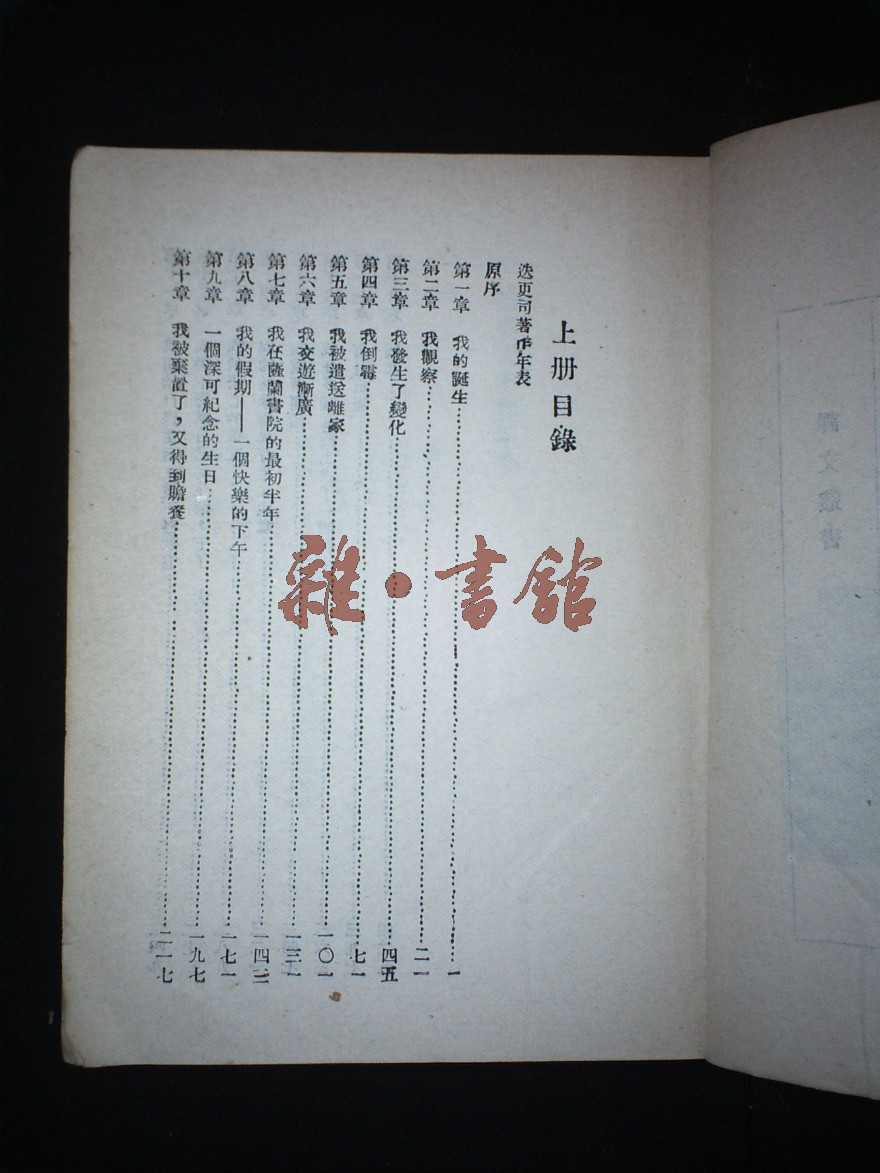 上册目錄
迭更司著作年表
原序
第一章 我的誕生…………一
第二章 我觀察…………二一
第三章 我發生了變化…………四五
第四章 我倒霉…………七一
第五章 我被遣送離家…………一〇一
第六章 我交遊漸廣…………一三一
第七章 我在薩蘭書院的最初半年…………一四三
第八章 我的假期——一個快樂的下午…………一七一
第九章 一個深可紀念的生日…………一九七
第十章 我被棄置了，又得到贍養…………二一七
雜·書館
文叢書